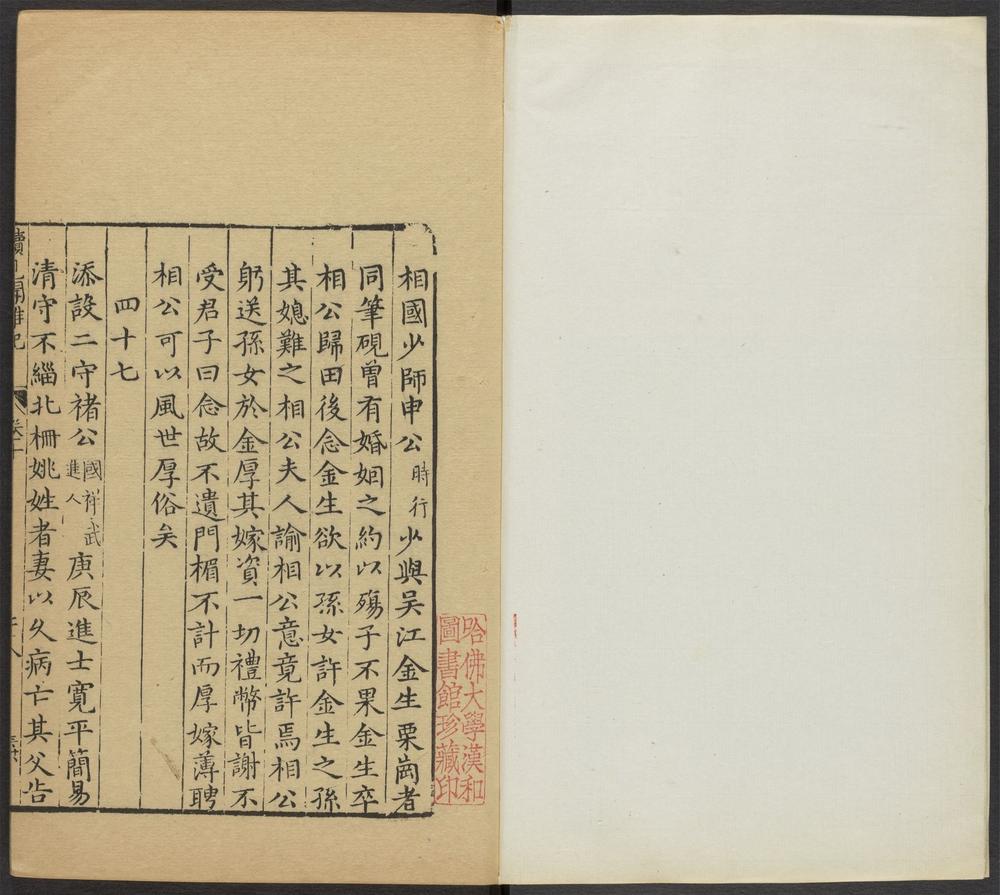 哈佛大學漢和
圖書館珍藏印
相國少師申公時行少與吴江金生栗崗者
同筆硯曾有婚姻之約以殤子不果金生卒
相公歸田後念金生欲以孫女許金生之孫
其媳難之相公夫人諭相公意竟許焉相公
躬送孫女於金厚其嫁資一切禮幣皆謝不
受君子曰念故不遺門楣不計而厚嫁薄聘
相公可以風世厚俗矣
四十七
添設二守褚公國祥武進人庚辰進士寛平簡易
清守不緇北柵姚姓者妻以久病亡其父告
卷二